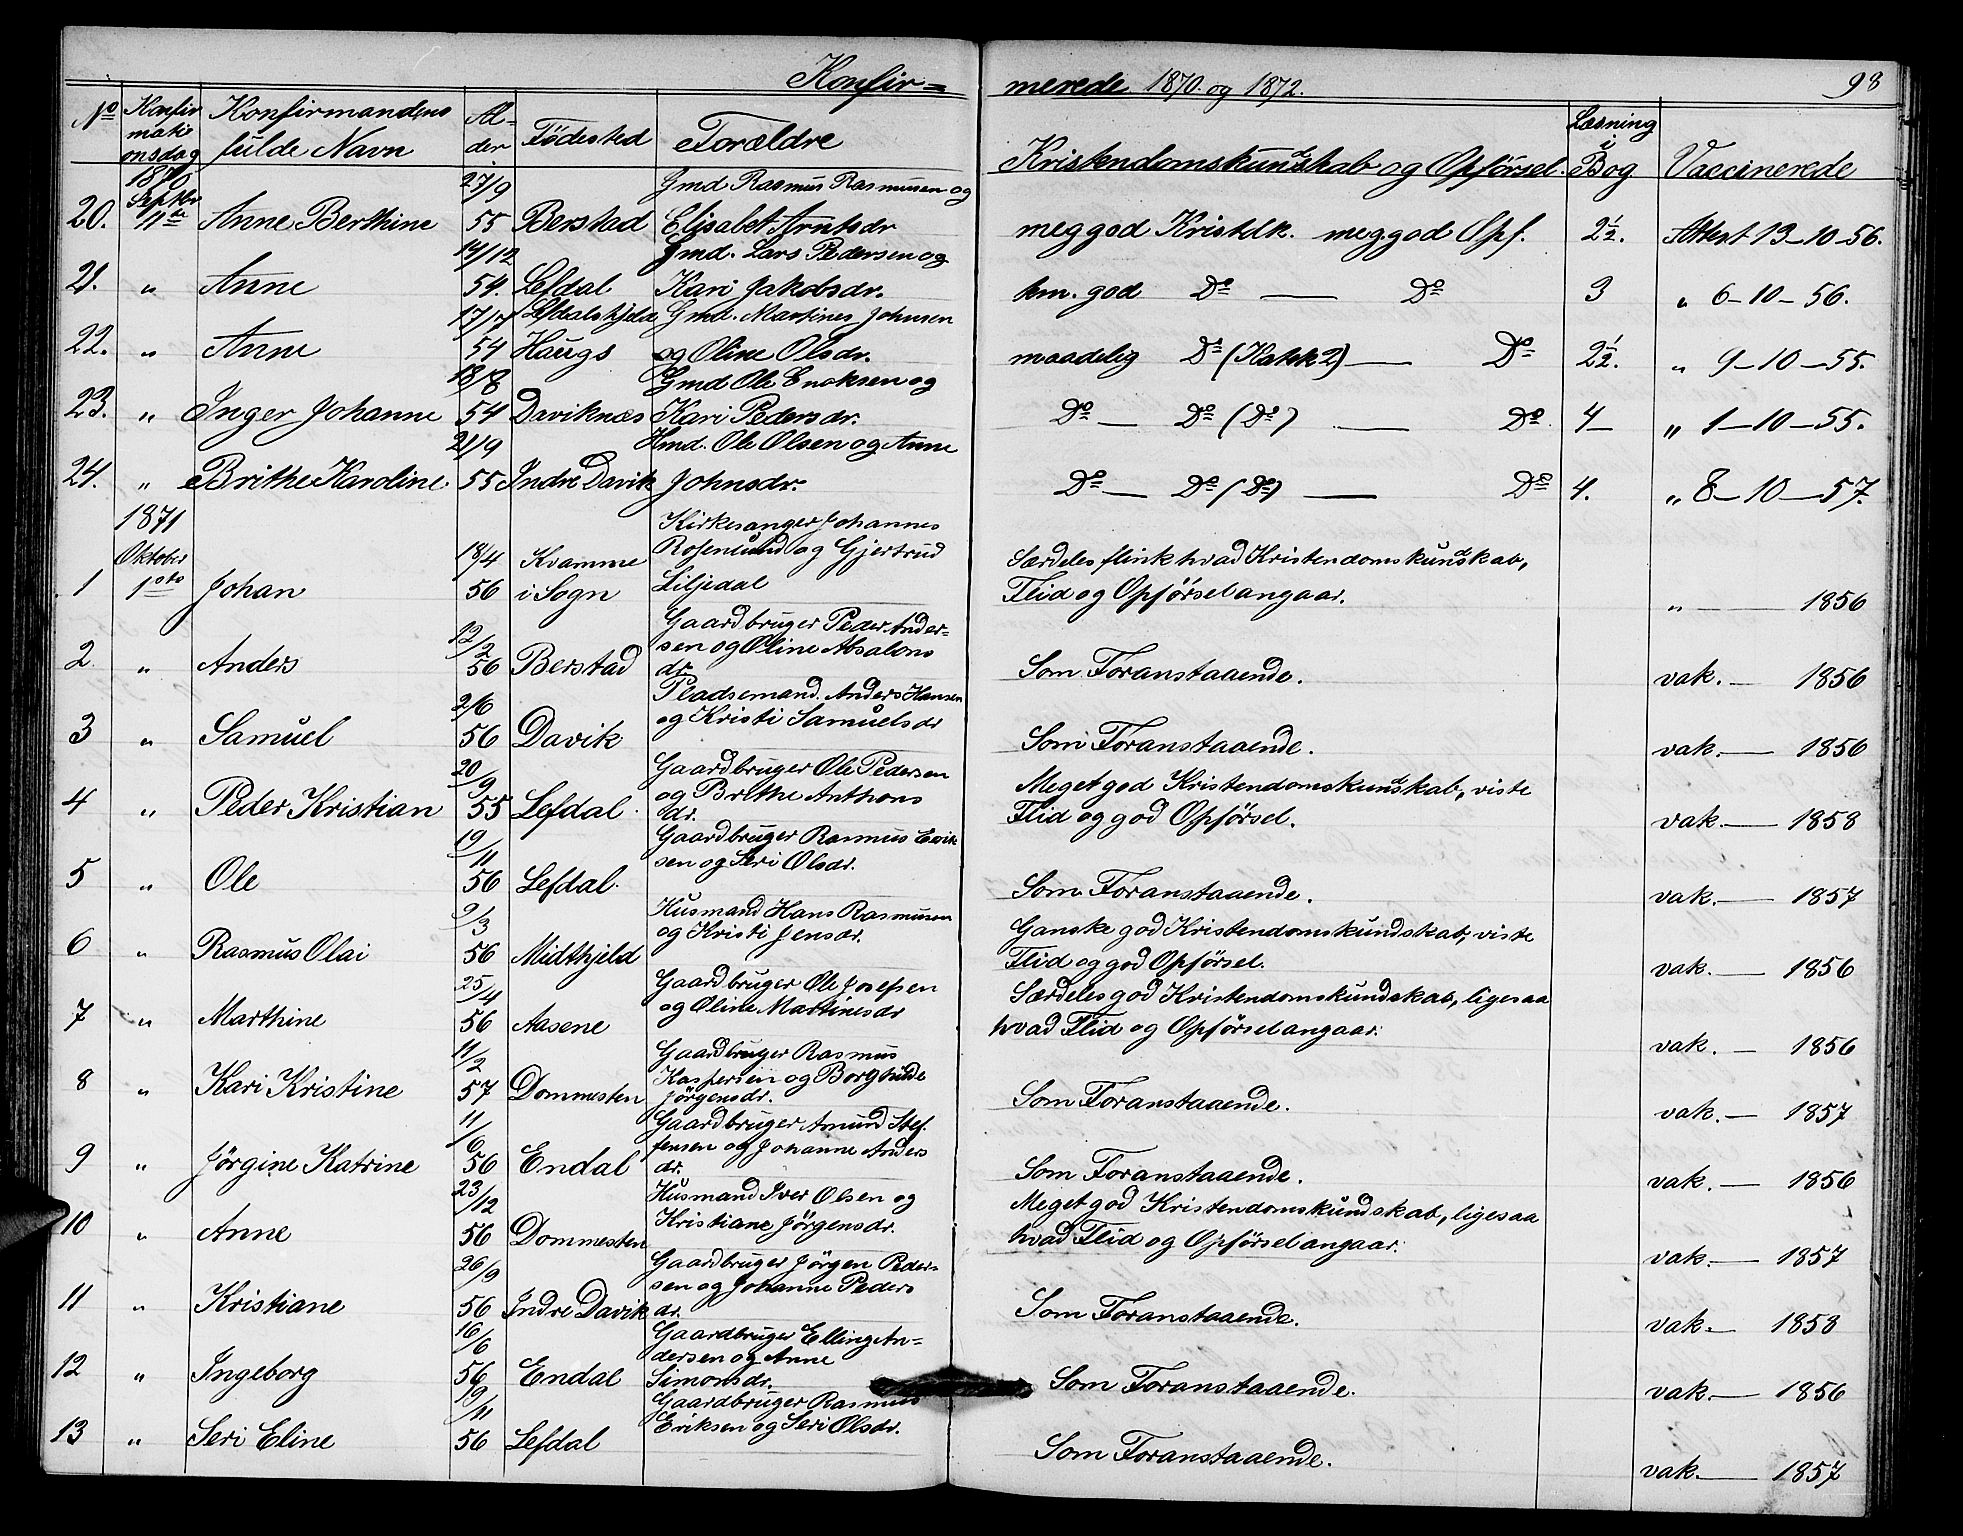 Konfirmerede 1870. og 1872. 98
No Konfirmationsdag Konfirmandens fulde Navn Alder Födested Forældre Kristendomskundskab og Opförsel. Læsning i Bog Vaccinerede
1870 27/9 Gmd Rasmus Rasmusen og
20. Septbr 11te Anne Berthine 55 Berstad Elisabet Arntsdr meg god Kristdk. meg god Opf. 2½. Attest 13-10-56.
14/12 Gmd. Lars Pedersen og
21. " Anne 54. Lefdal Kari Jakobsdr. km. god Do — Do 3 " 6-10-56.
Lefdalshjeld Gmd. Martines Johnsen
22. " Anne 54 Haugs og Oline Olsdr. maadelig Do (Katk 2) — Do 2½. " 9-10-55.
18/8 Gmd Ole Enoksen og
23. " Inger Johanne 54 Daviknæs Kari Pedersdr. Do — Do (Do) — Do 4 " 1-10-55.
21/9 Hmd. Ole Olsen og Anne
24. " Brithe Karoline 55 Indre Davik Johnsdr. Do — Do (Do) — Do 4. " 8-10-57.
1871 Kirkesanger Johannes
Oktober 18/4 Kvamme Rosenlund og Gjertrud Særdeles flink hvad Kristendomskundskab,
1 1ste Johan 56 i Sogn Liljedal Flid og Opförsel angaar. " — 1856
12/2 Gaardbruger Peder Ander-
sen og Oline Absalons
2 " Anders 56 Berstad dr. Som Foranstaaende. vak. — 1856
2/6 Pladsemand. Anders Hansen
og Kristi Samuelsdr
3 " Samuel 56 Davik Som Foranstaaende. vak. — 1856
20/9 Gaardbruger Ole Pedersen
og Brithe Anthons Meget god Kristendomskundskab, viste
4 " Peder Kristian 55 Lefdal. dr. Flid og god Opförsel. vak. — 1858
19/11 Gaardbruger Rasmus Erik
sen og Seri Olsdr.
5 " Ole 56 Lefdal. Som Foranstaaende. vak. — 1857
9/3 Husmand Hans Rasmusen
og Kristi Jensdr. Ganske god Kristendomskundskab, viste
6 " Rasmus Olai 56 Midthjeld Flid og god Opförsel. vak. — 1856
25/4 Gaardbruger Ole Josefsen
og Oline Martinesdr Særdeles god Kristendomskundskab, ligesaa
7 " Marthine 56 Aasene hvad Flid og Opförsel angaar. vak. — 1856
11/2 Gaardbruger Rasmus
Kaspersen og Borghilde
8 " Kari Kristine 57 Dommesten Jörgensdr. Som Foranstaaende. vak. — 1857
11/6 Gaardbruger Amund Stef
fensen og Johanne Anders
9 " Jörgine Katrine 56 Endal dr. Som Foranstaaende. vak. — 1856
23/12 Husmand Iver Olsen og Meget god Kristendomskundskab, ligesaa
10 " Anne 56 Dommesten Kristiane Jörgensdr. hvad Flid og Opförsel angaar. vak. — 1857
26/9 Gaardbruger Jörgen Peder-
sen og Johanne Peders
11 " Kristiane 56 Indre Davik dr. Som Foranstaaende. vak. — 1858
16/6 Gaardbruger Elling An-
dersen og Anne
12 " Ingeborg 56 Endal Simonsdr. Som Foranstaaende. vak. — 1856
19/11 Gaardbruger Rasmus
13 " Seri Eline 56 Lefdal Eriksen og Seri Olsdr. Som Foranstaaende. vak. — 1857